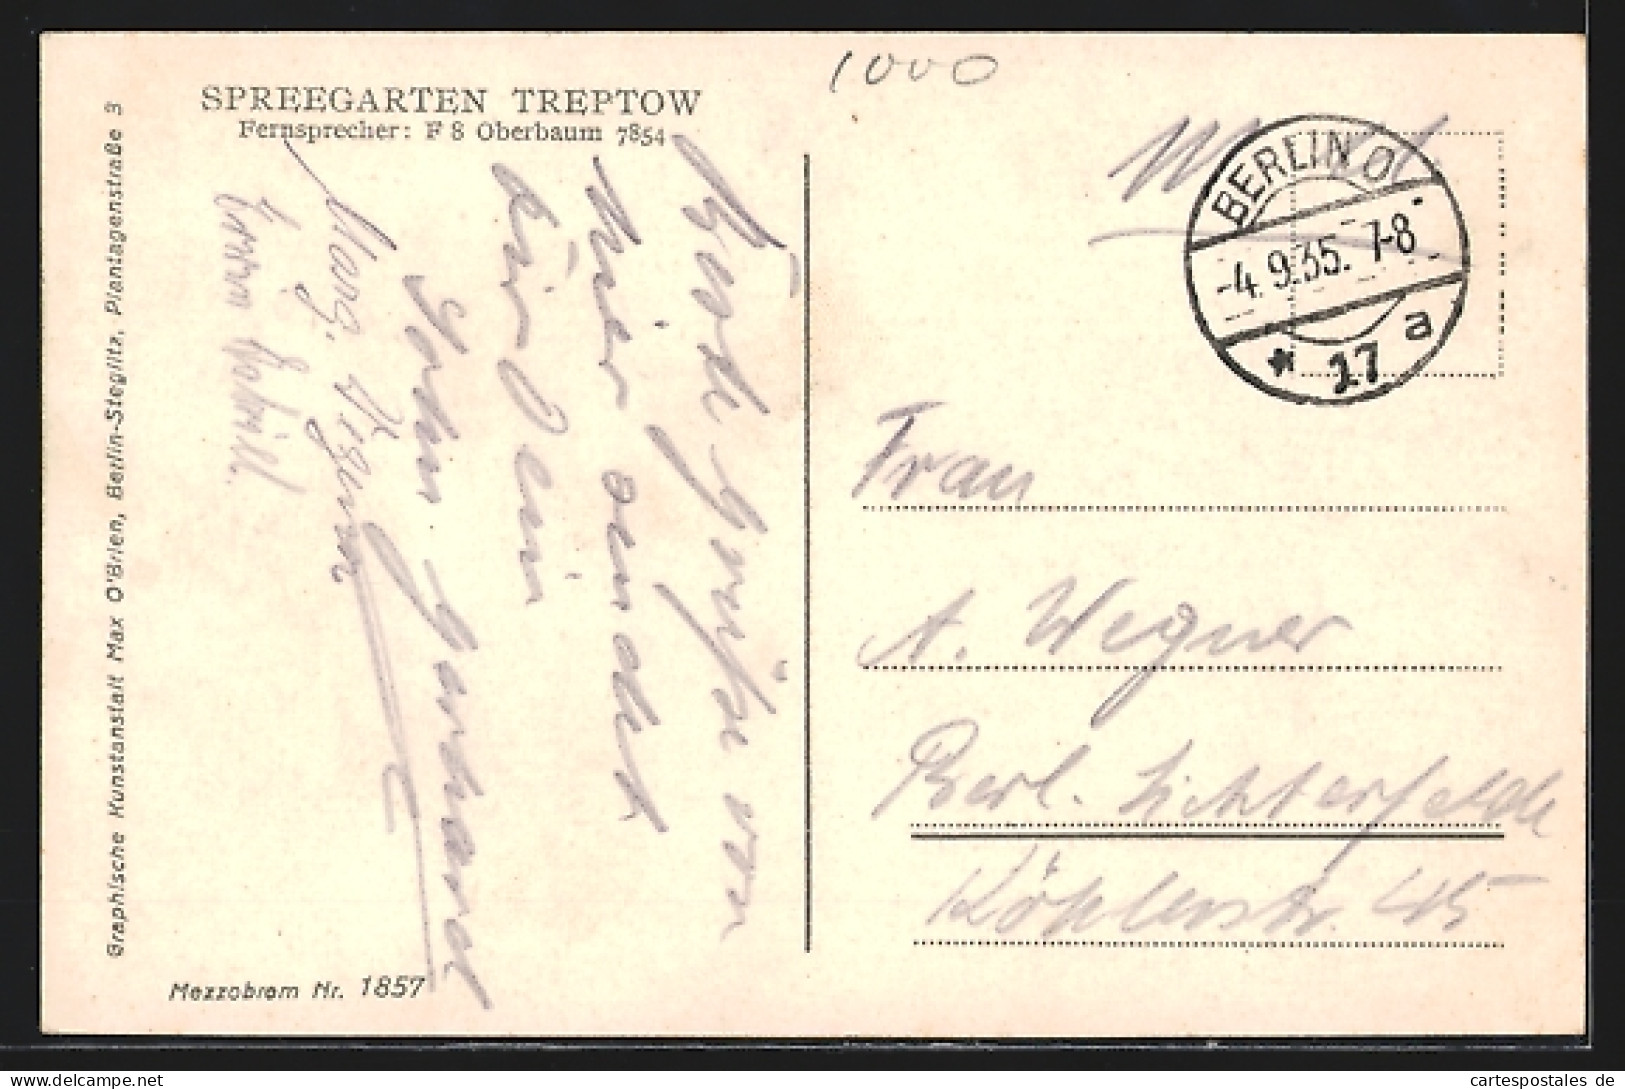 1000
SPREEGARTEN TREPTOW
Fernsprecher: F 8 Oberbaum 7854
Graphische Kunstanstalt Max O'Brien, Berlin-Steglitz, Plantagenstraße 3
Mezzobrom Nr. 1857
Beste Grüße von
hier sendet
Dein
Gerhard
BERLIN O
-4.9.35. 7-8
* 17 a
Frau
A. Wegner
Berl. Lichterfelde
Köhlerstr. 45
cartespostales de